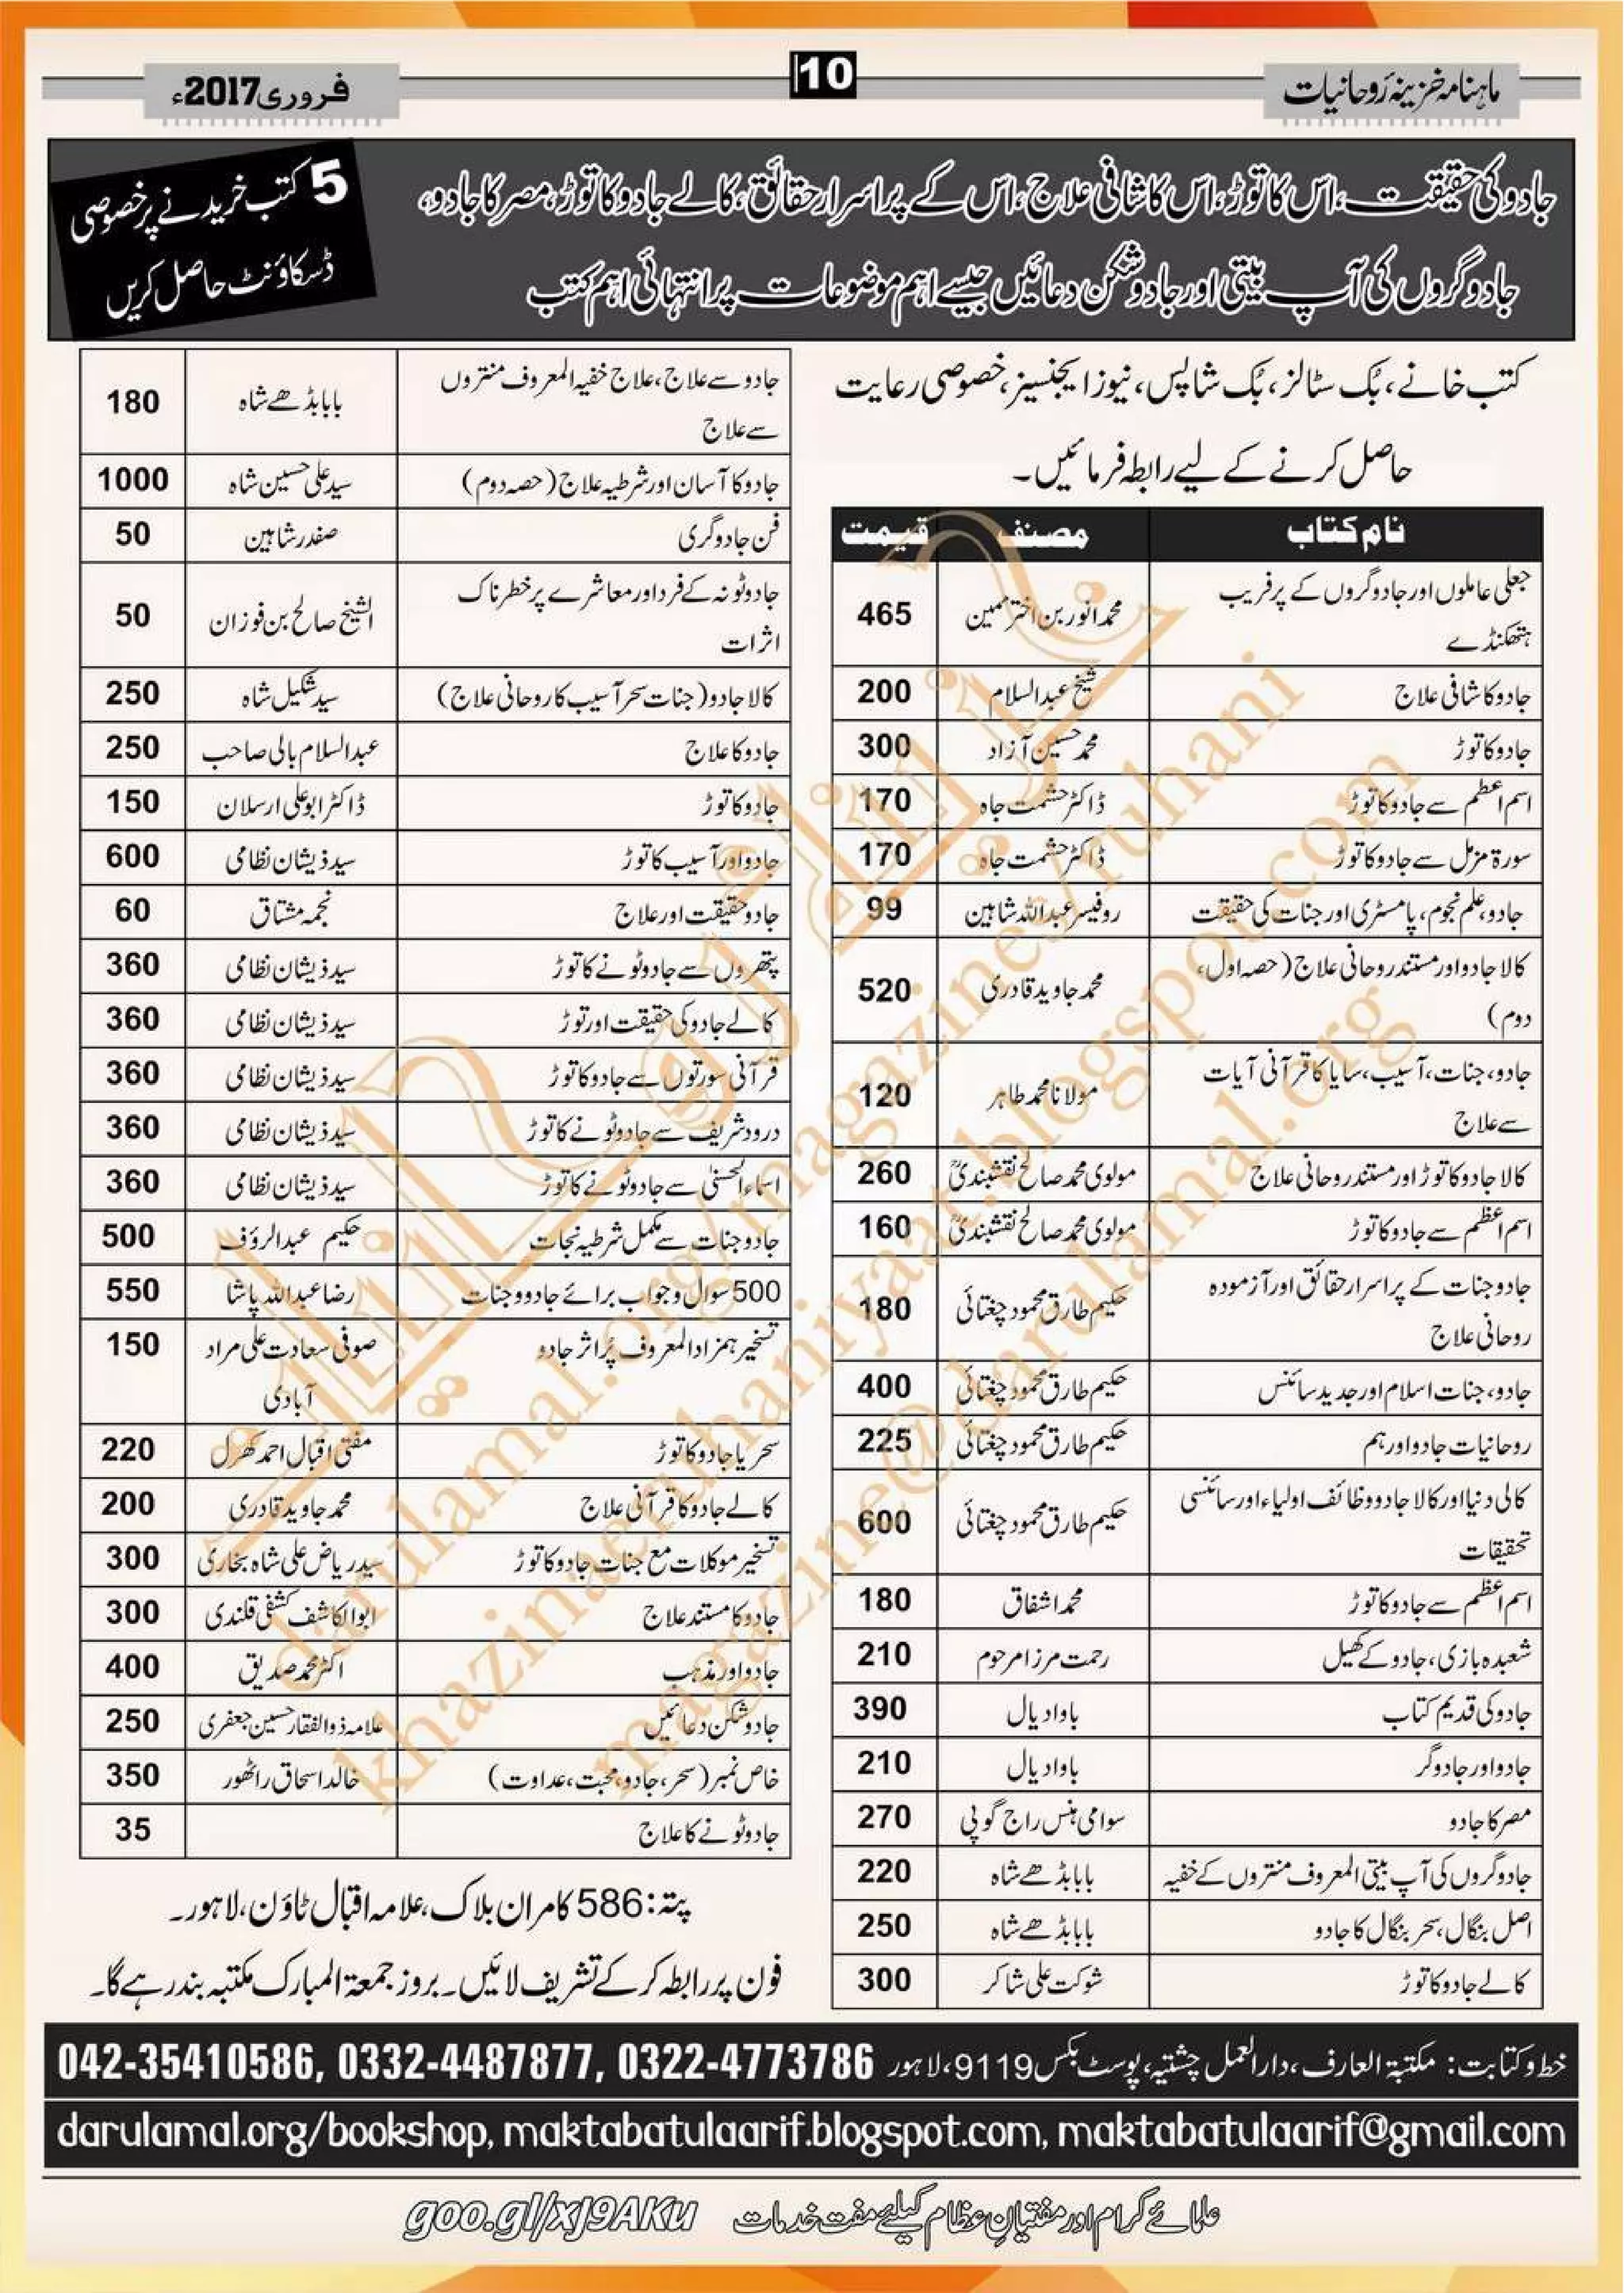 ماہنامہ خزینۂ روحانیات
10
فروری 2017ء
جادو کی حقیقت، اس کا توڑ، اس کا شافی علاج، اس کے پراسرار حقائق، کالے جادو کا توڑ، مصر کا جادو،
جادوگروں کی آپ بیتی اور جادو شکن دعائیں جیسے اہم موضوعات پر انتہائی اہم کتب
5 کتب خریدنے پر خصوصی
ڈسکاؤنٹ حاصل کریں
کتب خانے، بُک سٹالز، بُک شاپس، نیوز ایجنسیز، خصوصی رعایت
حاصل کرنے کے لیے رابطہ فرمائیں۔
نام کتاب مصنف قیمت
جعلی عاملوں اور جادوگروں کے پرفریب
ہتھکنڈے محمد انور بن اختر 465
جادو کا شافی علاج شیخ عبدالسلام 200
جادو کا توڑ محمد حسین آزاد 300
اسم اعظم سے جادو کا توڑ ڈاکٹر حشمت جاہ 170
سورۃ مزمل سے جادو کا توڑ ڈاکٹر حشمت جاہ 170
جادو، علم نجوم، پامسٹری اور جنات کی حقیقت روفیسر عبداللہ شاہین 99
کالا جادو اور مستند روحانی علاج (حصہ اول،
دوم) محمد جاوید قادری 520
جادو، جنات، آسیب، سایا کا قرآنی آیات
سے علاج مولانا محمد طاہر 120
کالا جادو کا توڑ اور مستند روحانی علاج مولوی محمد صالح نقشبندیؒ 260
اسم اعظم سے جادو کا توڑ مولوی محمد صالح نقشبندیؒ 160
جادو جنات کے پراسرار حقائق اور آزمودہ
روحانی علاج حکیم طارق محمود چغتائی 180
جادو، جنات اسلام اور جدید سائنس حکیم طارق محمود چغتائی 400
روحانیات جادو اور ہم حکیم طارق محمود چغتائی 225
کالی دنیا اور کالا جادو وظائف اولیاء اور سائنسی
تحقیقات حکیم طارق محمود چغتائی 600
اسم اعظم سے جادو کا توڑ محمد اشفاق 180
شعبدہ بازی، جادو کے کھیل رحمت مرزا مرحوم 210
جادو کی قدیم کتاب باوا دیال 390
جادو اور جادوگر باوا دیال 210
مصر کا جادو سوامی ہنس راج گوپی 270
جادوگروں کی آپ بیتی المعروف منتروں کے خفیہ بابا بڈھے شاہ 220
اصل بنگال، سحر بنگال کا جادو بابا بڈھے شاہ 250
کالے جادو کا توڑ شوکت علی شاکر 300
جادو سے علاج، علاج خفیہ المعروف منتروں
سے علاج بابا بڈھے شاہ 180
جادو کا آسان اور شرطیہ علاج (حصہ دوم) سید علی حسین شاہ 1000
فن جادوگری صفدر شاہین 50
جادو ٹونہ کے فرد اور معاشرے پر خطرناک
اثرات الشیخ صالح بن فوزان 50
کالا جادو (جنات سحر آسیب کا روحانی علاج) سید شکیل شاہ 250
جادو کا علاج عبدالسلام بالی صاحب 250
جادو کا توڑ ڈاکٹر ابو علی ارسلان 150
جادو اور آسیب کا توڑ سید ذیشان نظامی 600
جادو حقیقت اور علاج نجمہ مشتاق 60
پتھروں سے جادو ٹونے کا توڑ سید ذیشان نظامی 360
کالے جادو کی حقیقت اور توڑ سید ذیشان نظامی 360
قرآنی سورتوں سے جادو کا توڑ سید ذیشان نظامی 360
درود شریف سے جادو ٹونے کا توڑ سید ذیشان نظامی 360
اسماء الحسنیٰ سے جادو ٹونے کا توڑ سید ذیشان نظامی 360
جادو جنات سے مکمل شرطیہ نجات حکیم عبدالرؤف 500
500 سوال و جواب برائے جادو و جنات رضا عبداللہ پاشا 550
تسخیر ہمزاد المعروف پُراثر جادو صوفی سعادت علی مراد
آبادی 150
سحر یا جادو کا توڑ مفتی اقبال احمد کھرل 220
کالے جادو کا قرآنی علاج محمد جاوید قادری 200
تسخیر موکلات مع جنات جادو کا توڑ سید ریاض علی شاہ بخاری 300
جادو کا مستند علاج ابوالکاشف کشفی قلندی 300
جادو اور مذہب اکٹر محمد صدیق 400
جادو شکن دعائیں علامہ ذوالفقار حسین جعفری 250
خاص نمبر (سحر، جادو، محبت، عداوت) خالد اسحاق راٹھور 350
جادو ٹونے کا علاج 35
پتہ: 586 کامران بلاک، علامہ اقبال ٹاؤن، لاہور۔
فون پر رابطہ کر کے تشریف لائیں۔ بروز جمعۃ المبارک مکتبہ بند رہے گا۔
خط و کتابت: مکتبۃ العارف، دارالعمل چشتیہ، پوسٹ بکس 9119، لاہور 042-35410586, 0332-4487877, 0322-4773786
darulamal.org/bookshop, maktabatulaarif.blogspot.com, maktabatulaarif@gmail.com
علمائے کرام اور مفتیانِ عظام کیلئے مفت خدمات goo.gl/xJ9AKu
darulamal.org/magazine/ruhani
khazinaeruhaniyaat.blogspot.com
magazine@darulamal.org